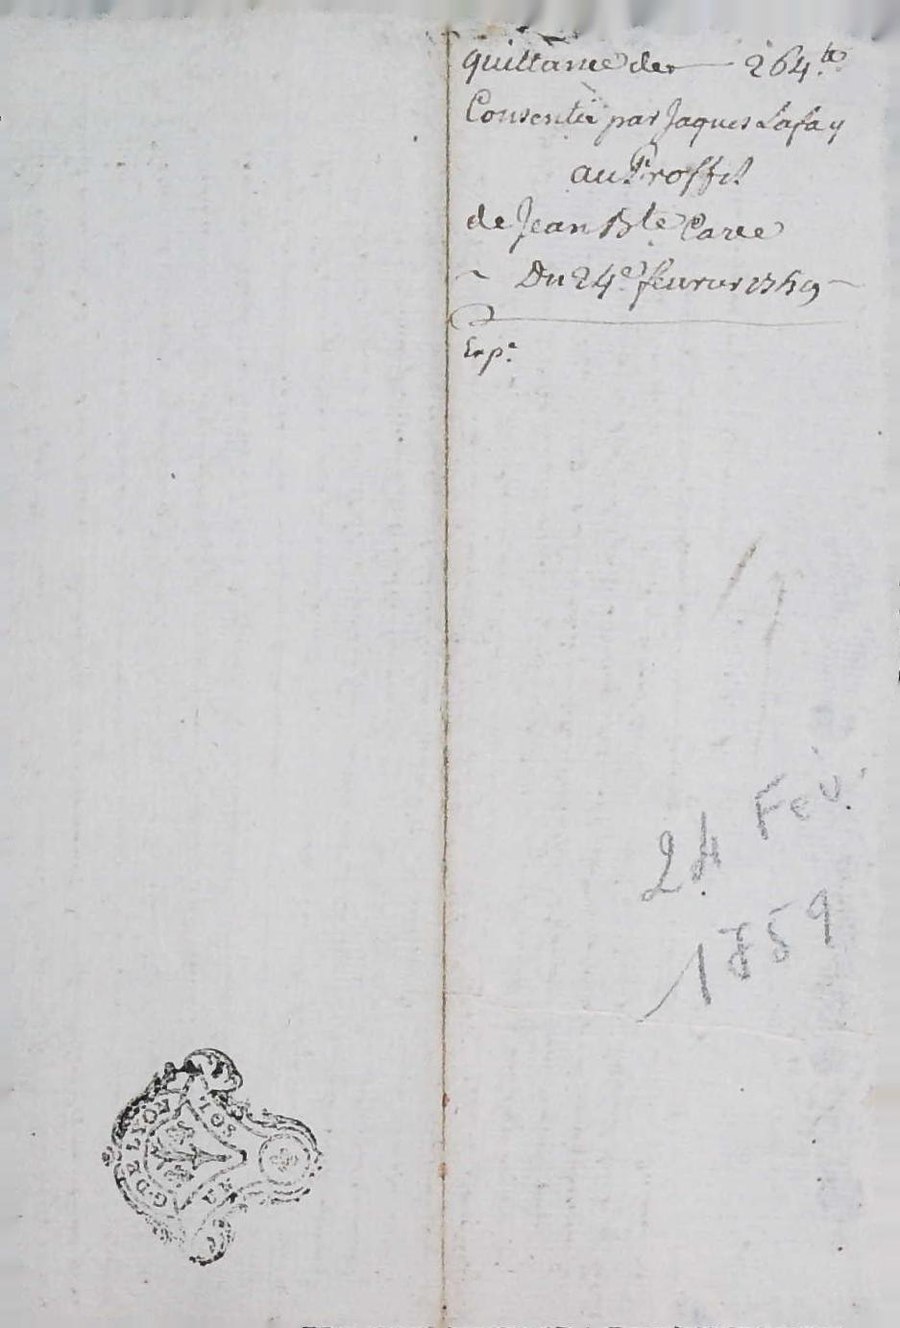 quittance de 264.tt
Consentie par Jaques Lafay
au Proffit
de Jean Bte Carre
Du 24e fevrier 1759
Exp.e
24 Fév.
1759
G. DE LYON
SOL